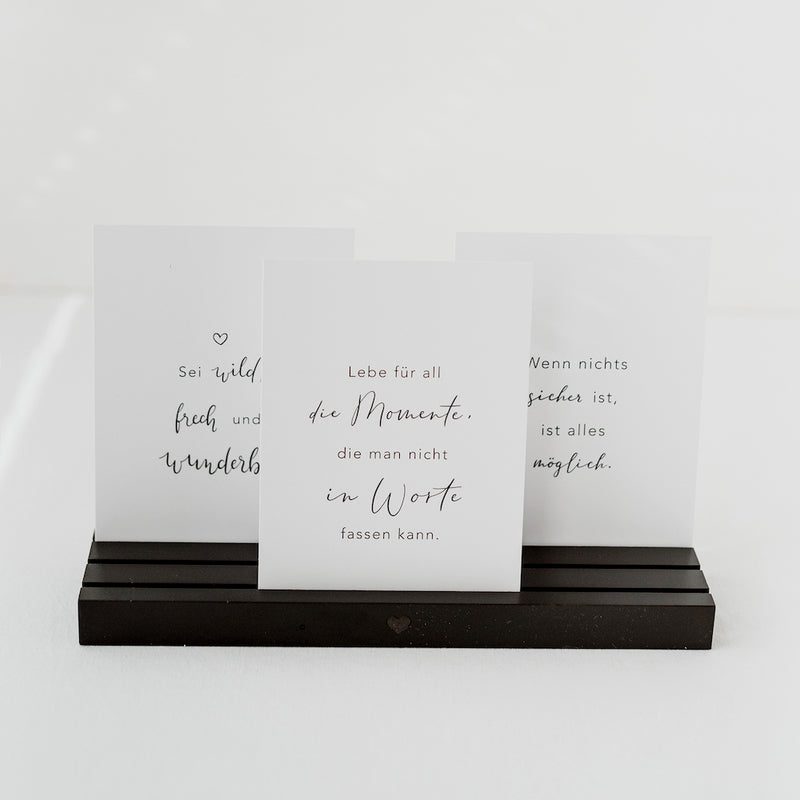 Sei wild,
frech und
wunderb
Lebe für all
die Momente,
die man nicht
in Worte
fassen kann.
Wenn nichts
sicher ist,
ist alles
möglich.